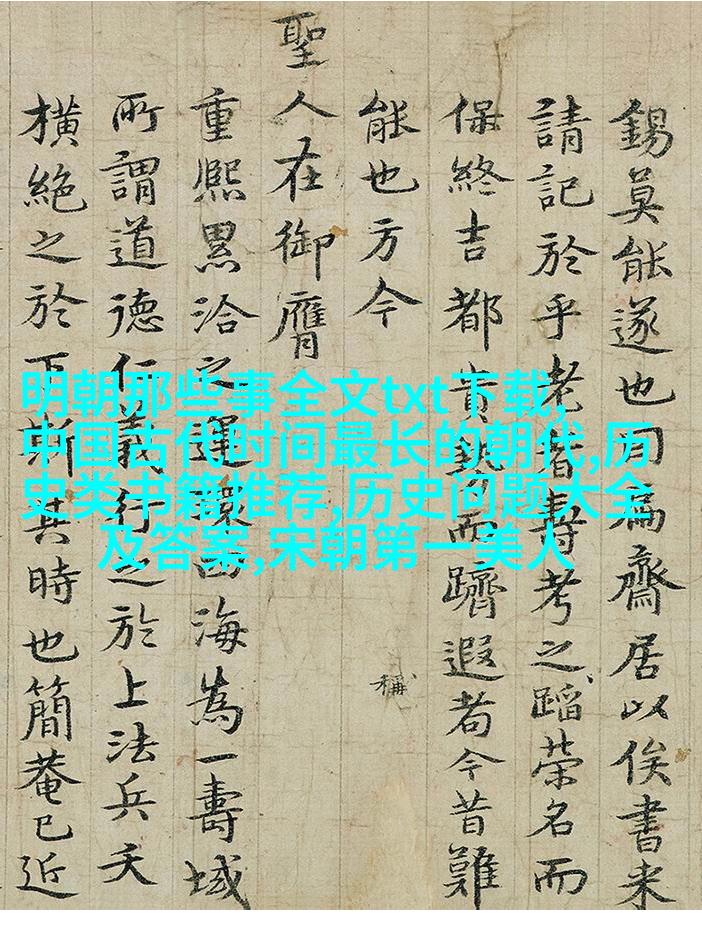 錫莫能遂也扁齋居以俟書来
請記於乎老者壽考之蹈榮名而
保終吉都貴勢而躋遐耇今昔難
能也方今
稱
聖人在御膺
重熙累洽之運環四海為一壽域
所謂道德仁義行之於上法兵夭
橫絕之於下斯其時也簡菴已近
明朝那些事全文txt下载,
中国古代时间最长的朝代,历
史类书籍推荐,历史问题大全
及答案,宋朝第一美人